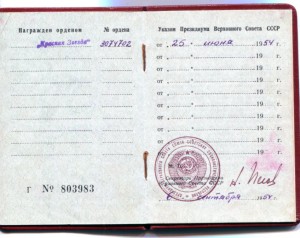 Награжден орденом
№ ордена
Указом Президиума Верховного Совета СССР
"Красная Звезда"
3074702
от „ 25 “ июня 1954 г.
от „ “ 19 г.
от „ “ 19 г.
от „ “ 19 г.
от „ “ 19 г.
от „ “ 19 г.
от „ “ 19 г.
от „ “ 19 г.
М. П.
Секретарь Президиума
Верховного Совета СССР
Г № 803983
сентября 195 г.